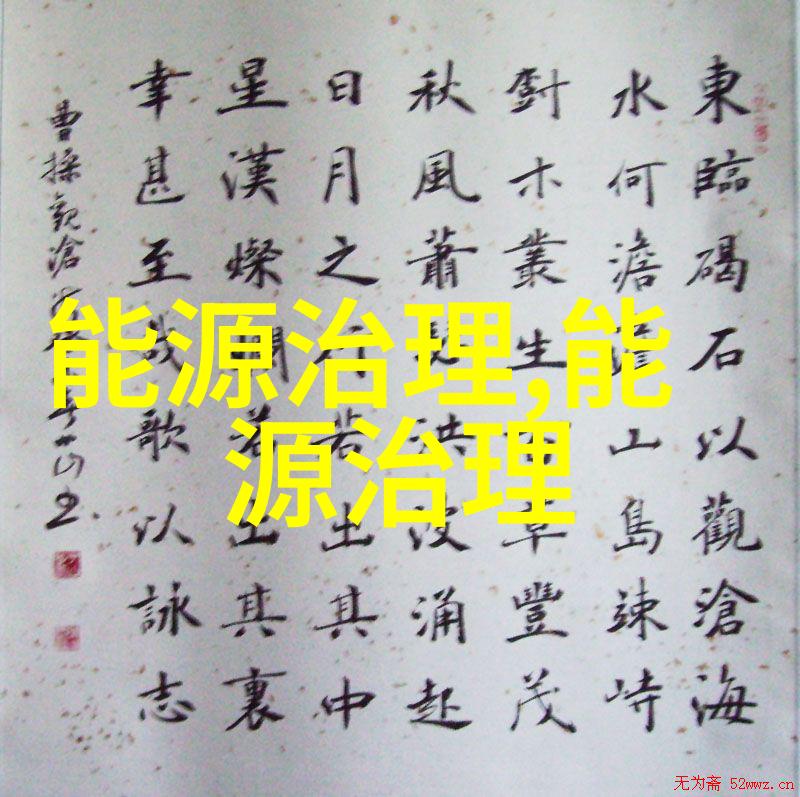 東臨碣石以觀滄海
水何澹澹山島竦峙
樹木叢生百草豐茂
秋風蕭瑟洪波涌起
日月之行若出其中
星漢燦爛若出其裏
幸甚至哉歌以詠志
曹操觀滄
能源治理,能
源治理
无为斋 52wwz.cn